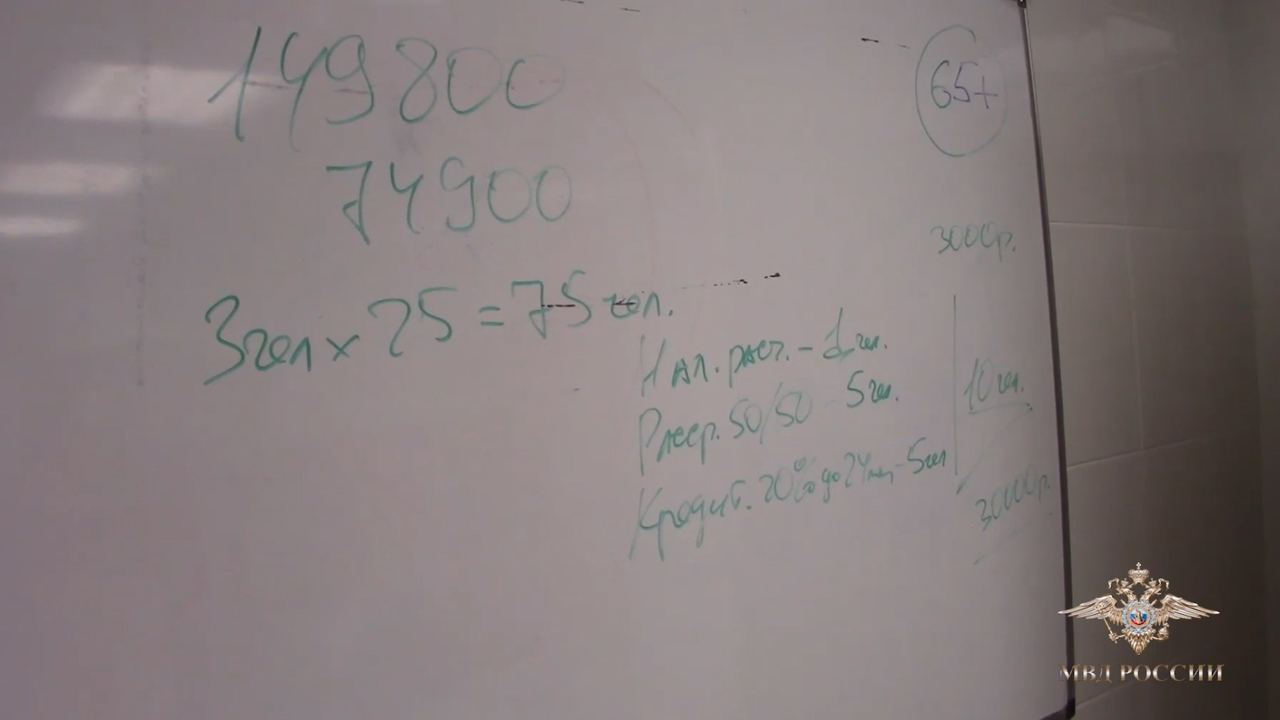 149800
74900
65+
3000р.
3чел х 25 = 75 чел.
Нал. расч. - 1 чел.
Расср. 50/50 - 5 чел.
10 чел.
Кредит. 20% до 24 мес - 5 чел
30000р.
МВД РОССИИ